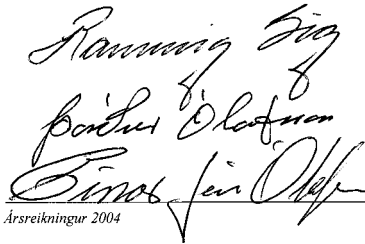 Rannveig Sig
Þórður Ólafsson
Einar Jón Ólafs
Ársreikningur 2004